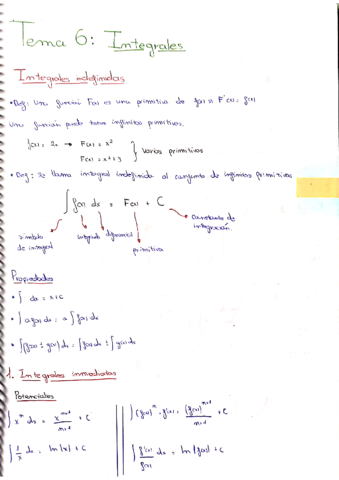 Tema 6: Integrales
Integrales indefinidas
• Def: Una función F(x) es una primitiva de f(x) si F'(x) = f(x)
Una función puede tener infinitas primitivas.
f(x) = 2x → F(x) = x²
F(x) = x² + 3 } Varias primitivas
• Def: Se llama integral indefinida al conjunto de infinitas primitivas
∫ f(x) dx = F(x) + C
símbolo de integral
integrando
diferencial
primitiva
constante de integración.
Propiedades
• ∫ dx = x + C
• ∫ a f(x) dx = a ∫ f(x) dx
• ∫ (f(x) ± g(x)) dx = ∫ f(x) dx ± ∫ g(x) dx
1. Integrales inmediatas
Potenciales
∫ xⁿ dx = xⁿ⁺¹/n+1 + C
∫ (f(x))ⁿ · f'(x) = (f(x))ⁿ⁺¹/n+1 + C
∫ 1/x dx = ln |x| + C
∫ f'(x)/f(x) dx = ln |f(x)| + C